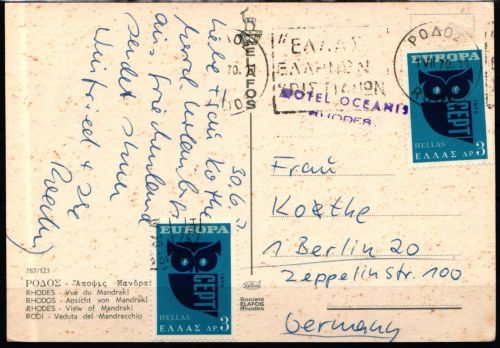 30.6.
Liebe Frau Koethe
herzl.
aus Griechenland
sendet Ihnen
Winfried +
787/123
ΡΟΔΟΣ - Ἄποψις Μανδρα
RHODES - Vue du Mandraki
RHODOS - Ansicht von Mandraki
RHODES - View of Mandraki
RODI - Veduta del Mandracchio
ELAFOS
Société
ELAFOS
Rhodes
"ΕΛΛΑΣ
ΕΛΛΗΝΩΝ
ΧΡΙΣΤΙΑΝΩΝ
HOTEL OCEANIS
RHODES
ΡΟΔΟΣ
70
EUROPA
CEPT
HELLAS
ΕΛΛΑΣ ΔΡ. 3
Frau
Koethe
1 Berlin 20
Zeppelinstr. 100
Germany
EUROPA
CEPT
HELLAS
ΕΛΛΑΣ ΔΡ. 3